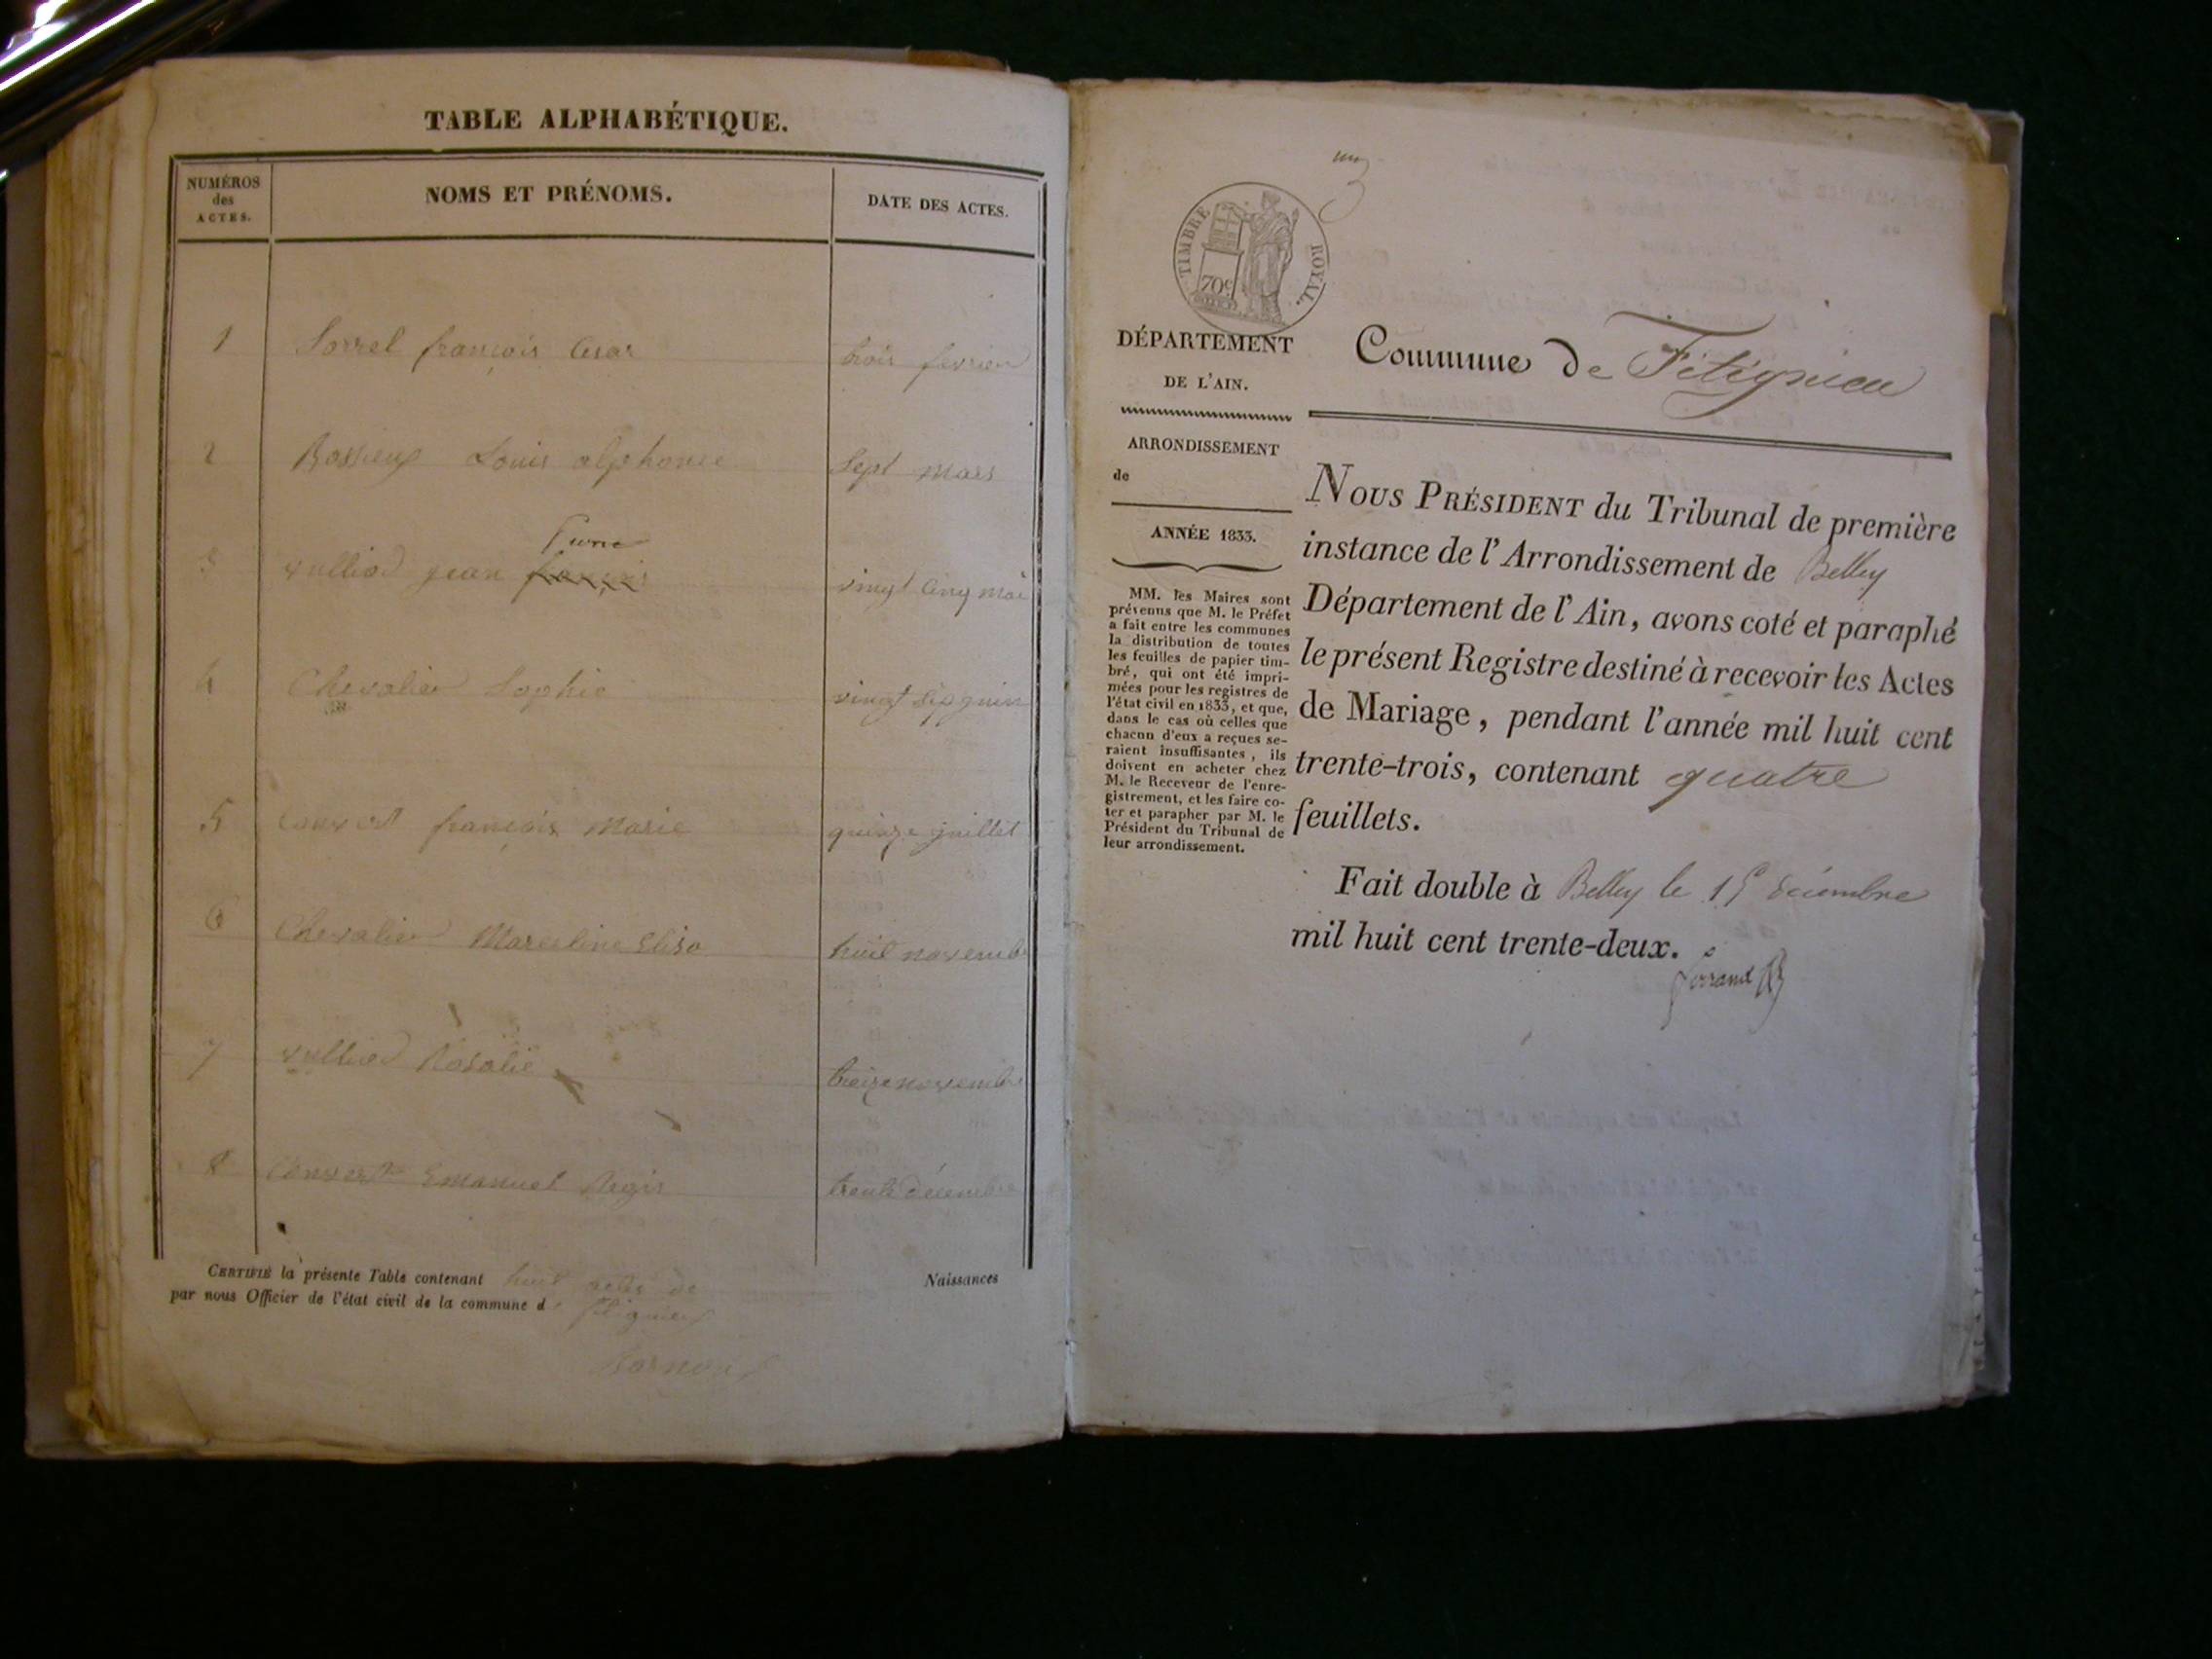 TABLE ALPHABÉTIQUE.
NUMÉROS
des
ACTES.
NOMS ET PRÉNOMS.
DATE DES ACTES.
1 Sorrel françois Cesar trois fevrier
2 Bossieux Louis alphonse Sept mars
Pierre
3 vulliod jean françois vingt cinq mai
4 Chevalier Sophie vingt six juin
5 Convert françois Marie quinze juillet
6 Chevalier Marceline Elisa huit novembre
7 vulliod Rosalie treize novembre
8 Convert Emanuel Regis trente décembre
CERTIFIÉ la présente Table contenant huit actes de Naissances
par nous Officier de l'état civil de la commune d
TIMBRE ROYAL.
70c
DÉPARTEMENT
DE L'AIN.
Commune de Fitignieu
ARRONDISSEMENT
de
ANNÉE 1833.
MM. les Maires sont
prévenus que M. le Préfet
a fait entre les communes
la distribution de toutes
les feuilles de papier tim-
bré, qui ont été impri-
mées pour les registres de
l'état civil en 1833, et que,
dans le cas où celles que
chacun d'eux a reçues se-
raient insuffisantes, ils
doivent en acheter chez
M. le Receveur de l'enre-
gistrement, et les faire co-
ter et parapher par M. le
Président du Tribunal de
leur arrondissement.
NOUS PRÉSIDENT du Tribunal de première
instance de l'Arrondissement de Belley
Département de l'Ain, avons coté et paraphé
le présent Registre destiné à recevoir les Actes
de Mariage, pendant l'année mil huit cent
trente-trois, contenant quatre
feuillets.
Fait double à Belley le 15 décembre
mil huit cent trente-deux.